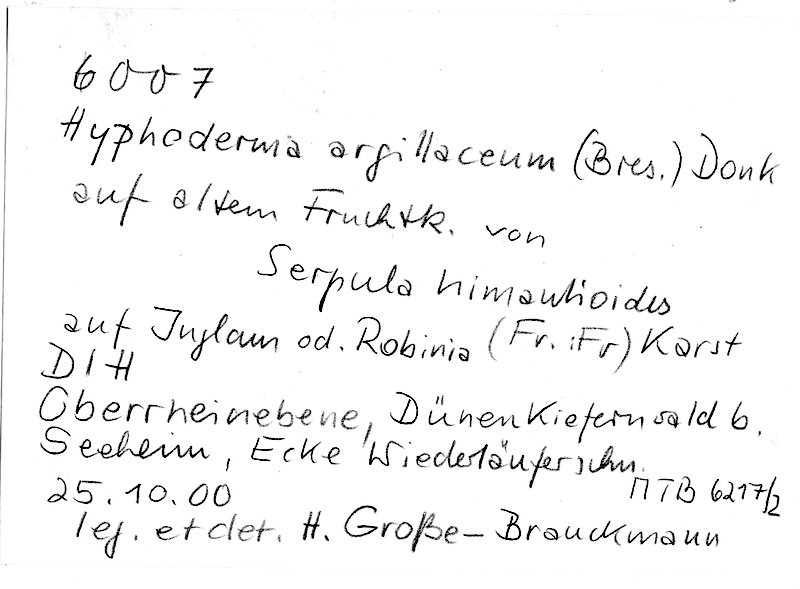 6007
Hyphoderma argillaceum (Bres.) Donk
auf altem Fruchtk. von
Serpula himantioides
auf Juglans od. Robinia (Fr.:Fr) Karst
D/H
Oberrheinebene, Dünenkiefernwald b.
Seeheim, Ecke Wiederläuferschn.
25.10.00 MTB 6217/2
leg. et det. H. Große-Brauckmann